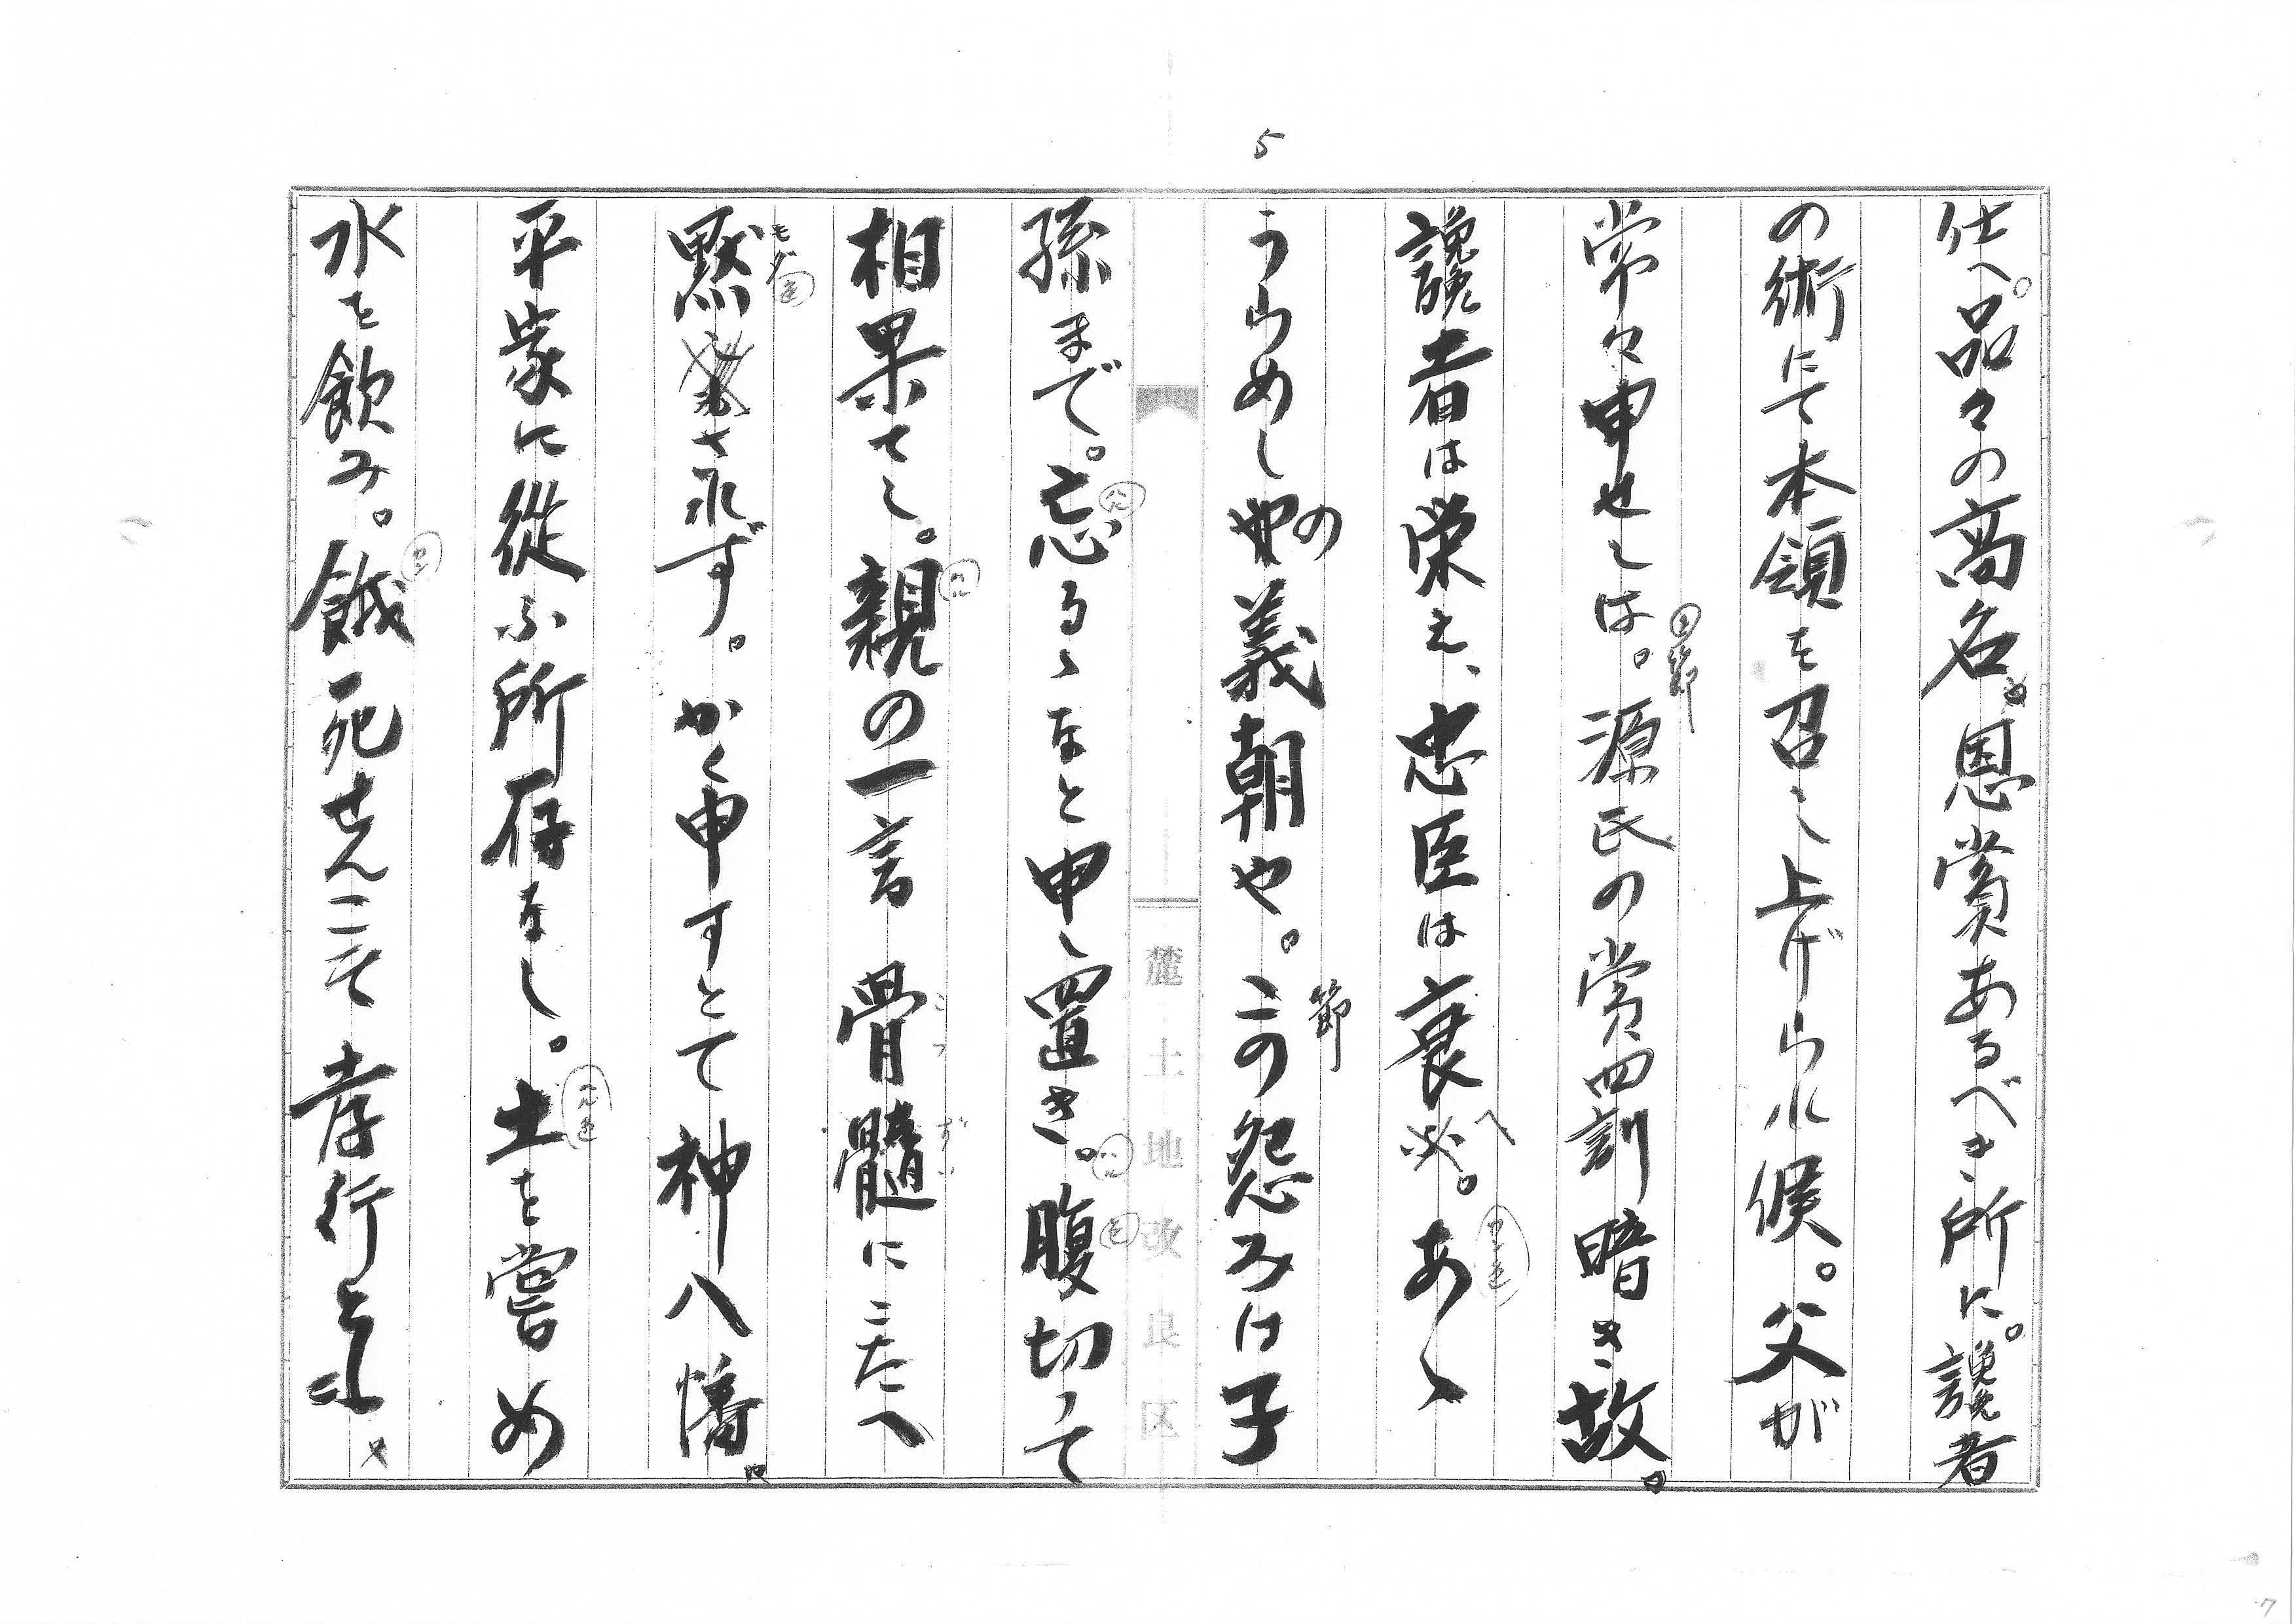 5
仕へ。品々の高名。恩賞あるべき所に。讒者
の術にて本領を召し上げられ候。父が
常々申せしは。源氏の賞罰暗き故。
節
讒者は栄え、忠臣は衰へ。あゝ
うらめしの義朝や。この怨みは子
節
孫まで。忘るゝなと申し置き。腹切って
相果てし。親の一言骨髄にこたへ
こつずい
黙されず。かく申すとて神八幡。
もだ
平家に従ふ所存なし。土を嘗め
水を飲み。餓死せんこそ孝行と
麓土地改良区
7